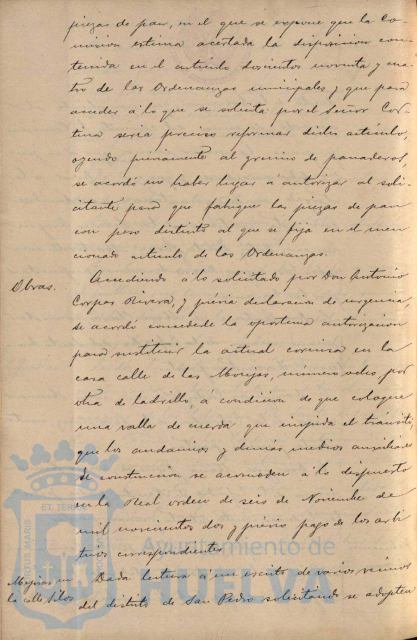 piezas de pan, en el que se expone que la Co-
mision estima acertada la disposicion con-
tenida en el articulo doscientos noventa y cua-
tro de las Ordenanzas municipales y que para
acceder á lo que se solicita por el Señor Cor-
tina seria preciso reformar dicho articulo,
oyendo previamente al gremio de panaderos,
se acordó no haber lugar á autorizar al soli-
citante para que fabrique las piezas de pan
con peso distinto al que se fija en el men-
cionado articulo de las Ordenanzas.
Obras.
Accediendo á lo solicitado por Don Antonio
Corpas Rivera, y previa declaracion de urgencia,
se acordó concederle la oportuna autorizacion
para sustituir la actual cornisa en la
casa calle de las Monjas, número ocho por
otra de ladrillo, á condicion de que coloque
una valla de cuerda que impida el tránsito,
que los andamios y demás medios auxiliares
de construccion se acomoden á lo dispuesto
en la Real orden de seis de Noviembre de
mil novecientos dos y previo pago de los arbi-
trios correspondientes.
Mejoras en
la calle Silos
Dada lectura á un escrito de varios vecinos
del distrito de San Pedro solicitando se adopten
Ayuntamiento de
HUELVA